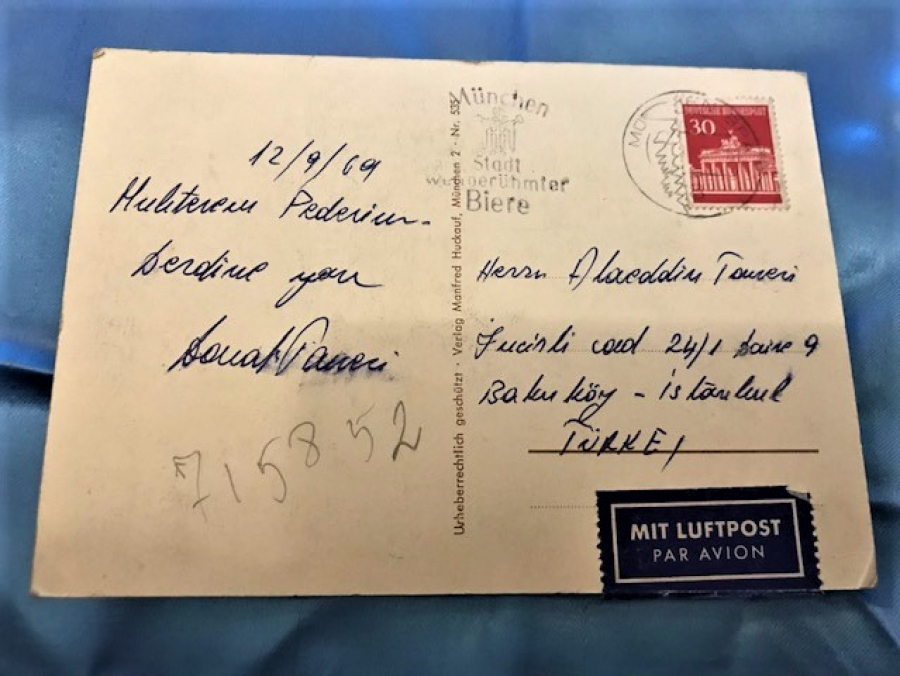 12/9/69
Muhterem Pederim -
Derdine yan
München
Stadt
weltberühmter
Biere
30
DEUTSCHE BUNDESPOST
Urheberrechtlich geschützt · Verlag Manfred Huckauf, München 2 - Nr. 535
Herrn Alaeddin Taneri
İncirli cad 24/1 Daire 9
Bakırköy - İstanbul
TÜRKEI
715852
MIT LUFTPOST
PAR AVION